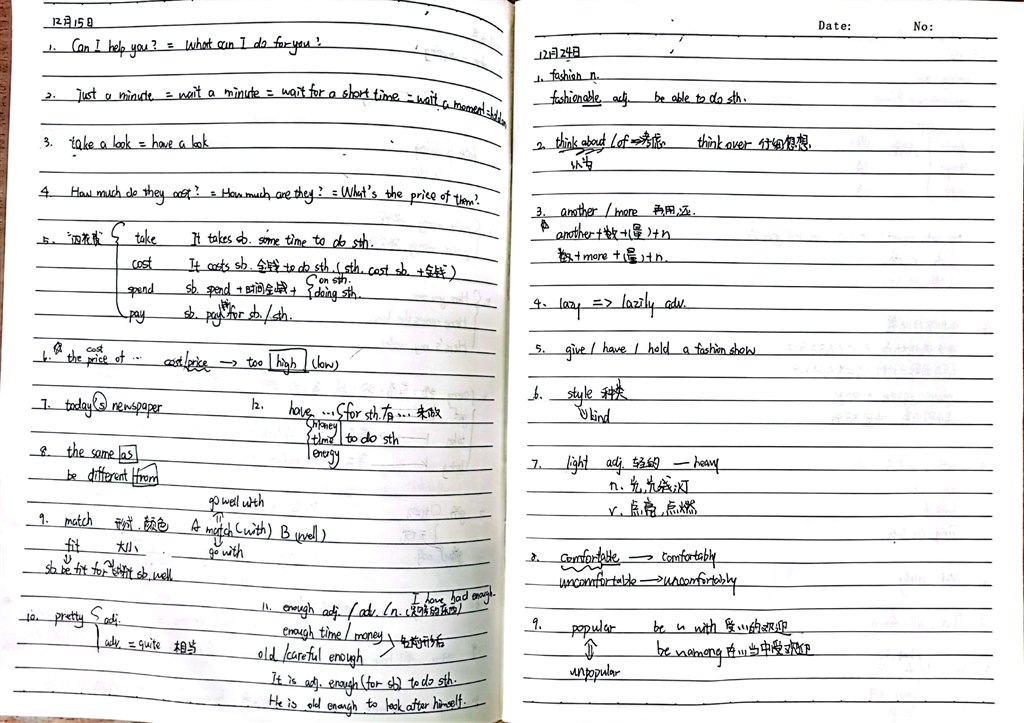 12月15日
1. Can I help you? = What can I do for you?
2. Just a minute = wait a minute = wait for a short time = wait a moment = hold on
3. take a look = have a look
4. How much do they cost? = How much are they? = What's the price of them?
5. "四花费" take It takes sb. some time to do sth.
cost It costs sb. 金钱 to do sth. (sth. cost sb. + 金钱)
spend sb. spend + 时间金钱 + on sth.
doing sth.
pay sb. pay 钱 for sb. / sth.
6. the price of ... cost/price → too high (low)
cost
7. today's newspaper
8. the same as
be different from
go well with
9. match 形状、颜色 A match (with) B (well)
fit 大小 go with
sb. be fit for sth fit sb. well
10. pretty adj.
adv. = quite 相当
12. have ... for sth. 有...来做
money
time to do sth
energy
I have had enough.
11. enough adj. / adv. / n.
enough time / money
old / careful enough
It is adj. enough (for sb.) to do sth.
He is old enough to look after himself.
Date: No:
12月24日
1. fashion n.
fashionable adj. be able to do sth.
2. think about / of => 考虑 think over 仔细想想
认为
3. another / more 再用,还.
another + 数 + (量) + n
数 + more + (量) + n.
4. lazy => lazily adv.
5. give / have / hold a fashion show
6. style 种类
kind
7. light adj. 轻的 — heavy
n. 光,光线,灯
v. 点亮,点燃
8. comfortable → comfortably
uncomfortable → uncomfortably
9. popular be ~ with 受...的欢迎
be ~ among 在...当中受欢迎
unpopular